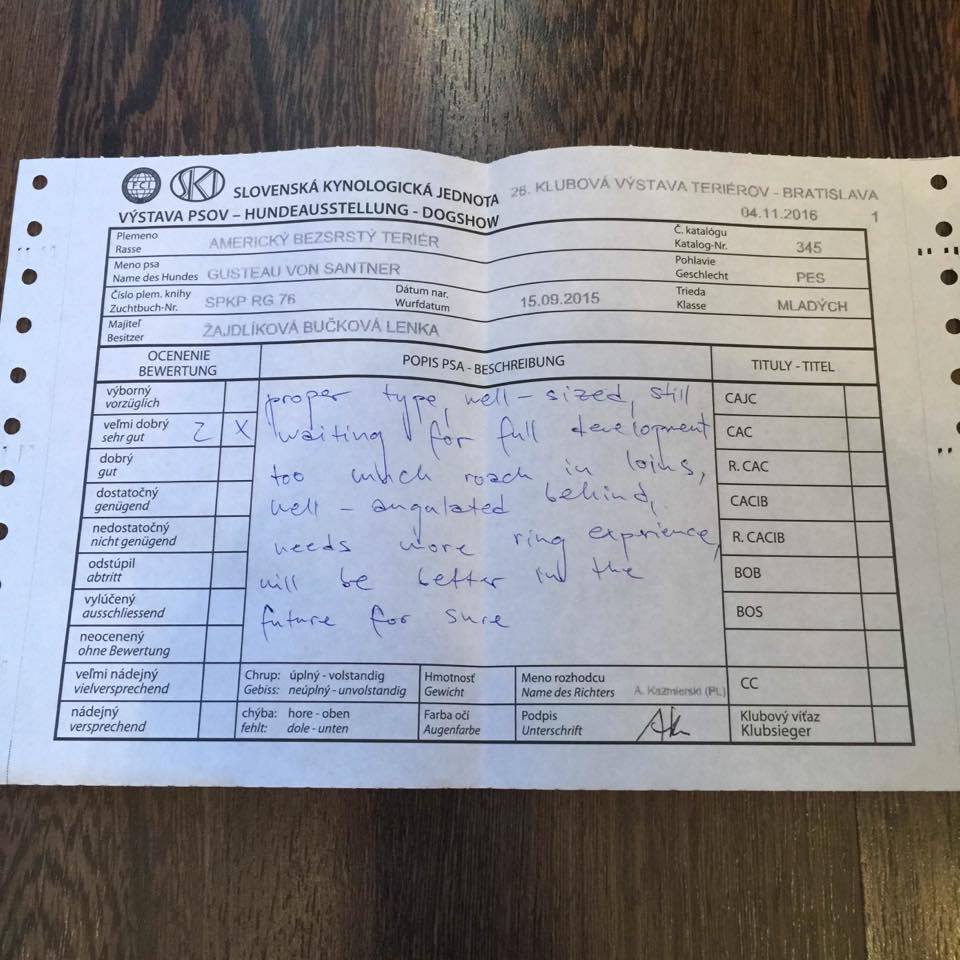 FCI SKJ SLOVENSKÁ KYNOLOGICKÁ JEDNOTA 26. KLUBOVÁ VÝSTAVA TERIÉROV - BRATISLAVA
VÝSTAVA PSOV – HUNDEAUSSTELLUNG - DOGSHOW 04.11.2016 1
Plemeno
Rasse AMERICKÝ BEZSRSTÝ TERIÉR
Č. katalógu
Katalog-Nr. 345
Meno psa
Name des Hundes GUSTEAU VON SANTNER
Pohlavie
Geschlecht PES
Číslo plem. knihy
Zuchtbuch-Nr. SPKP RG 76
Dátum nar.
Wurfdatum 15.09.2015
Trieda
Klasse MLADÝCH
Majiteľ
Besitzer ŽAJDLÍKOVÁ BUČKOVÁ LENKA
OCENENIE
BEWERTUNG
POPIS PSA - BESCHREIBUNG
TITULY - TITEL
výborný
vorzüglich
veľmi dobrý
sehr gut 2 X
dobrý
gut
dostatočný
genügend
nedostatočný
nicht genügend
odstúpil
abtritt
vylúčený
ausschliessend
neocenený
ohne Bewertung
veľmi nádejný
vielversprechend
nádejný
versprechend
proper type, well-sized, still
waiting for full development
too much roach in loins,
well-angulated behind,
needs more ring experience,
will be better in the
future for sure
CAJC
CAC
R. CAC
CACIB
R. CACIB
BOB
BOS
Chrup: úplný - volstandig
Gebiss: neúplný - unvolstandig
Hmotnosť
Gewicht
Meno rozhodcu
Name des Richters A. Kazmierski (PL)
CC
chýba: hore - oben
fehlt: dole - unten
Farba očí
Augenfarbe
Podpis
Unterschrift
Klubový víťaz
Klubsieger